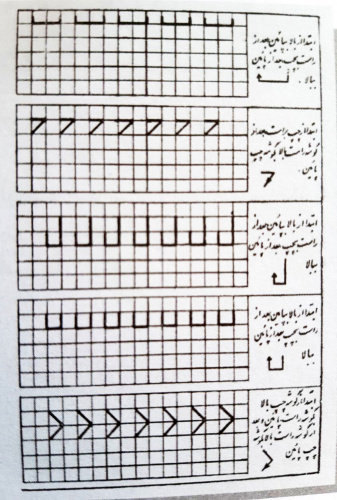 ابتدا از بالا بپائین بعد از
راست بچپ بعد از پائین
ببالا .
ابتدا از چپ براست بعد از
گوشه راست بالا بگوشه چپ
پائین .
ابتدا از بالا بپائین بعد از
راست بچپ بعد از پائین
ببالا
ابتدا از بالا بپائین بعد از
راست بچپ بعد از پائین
ببالا
ابتدا از گوشه چپ بالا
بگوشه راست پائین و بعد
از گوشه راست بالا بگوشه
چپ پائین